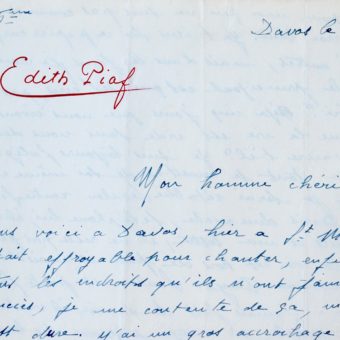 Davos le
Edith Piaf
Mon homme chéri
us voici a Davos, hier a St M
tait effroyable pour chanter, enf
les endroits qu'ils n'ont jam
ccès, je me contente de ça,
dure. j'ai un gros accrochage